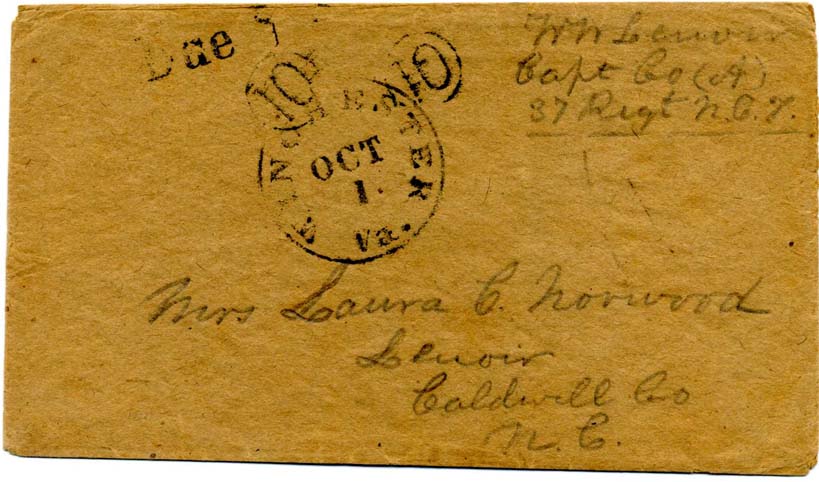 Due
10
10
W W Lenoir
Capt Co (A)
37 Regt N.C.T.
WINCHESTER VA.
OCT
1
Mrs Laura C. Norwood
Lenoir
Caldwell Co
N. C.